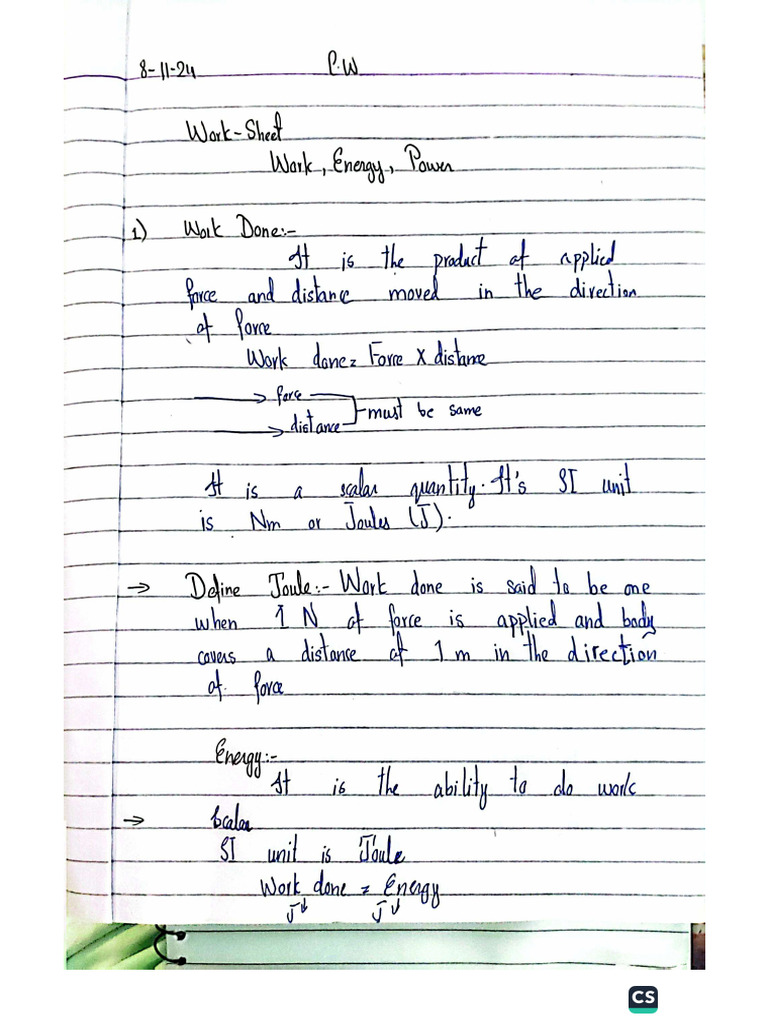 8-11-24 C.W
Work-Sheet
Work, Energy, Power
1) Work Done:-
It is the product of applied
force and distance moved in the direction
of force
Work done = Force X distance
force
must be same
distance
It is a scalar quantity. It's SI unit
is Nm or Joules (J).
→ Define Joule:- Work done is said to be one
when 1 N of force is applied and body
covers a distance of 1 m in the direction
of force
Energy:-
It is the ability to do work
→ Scalar
SI unit is Joule
Work done = Energy
J J
CS